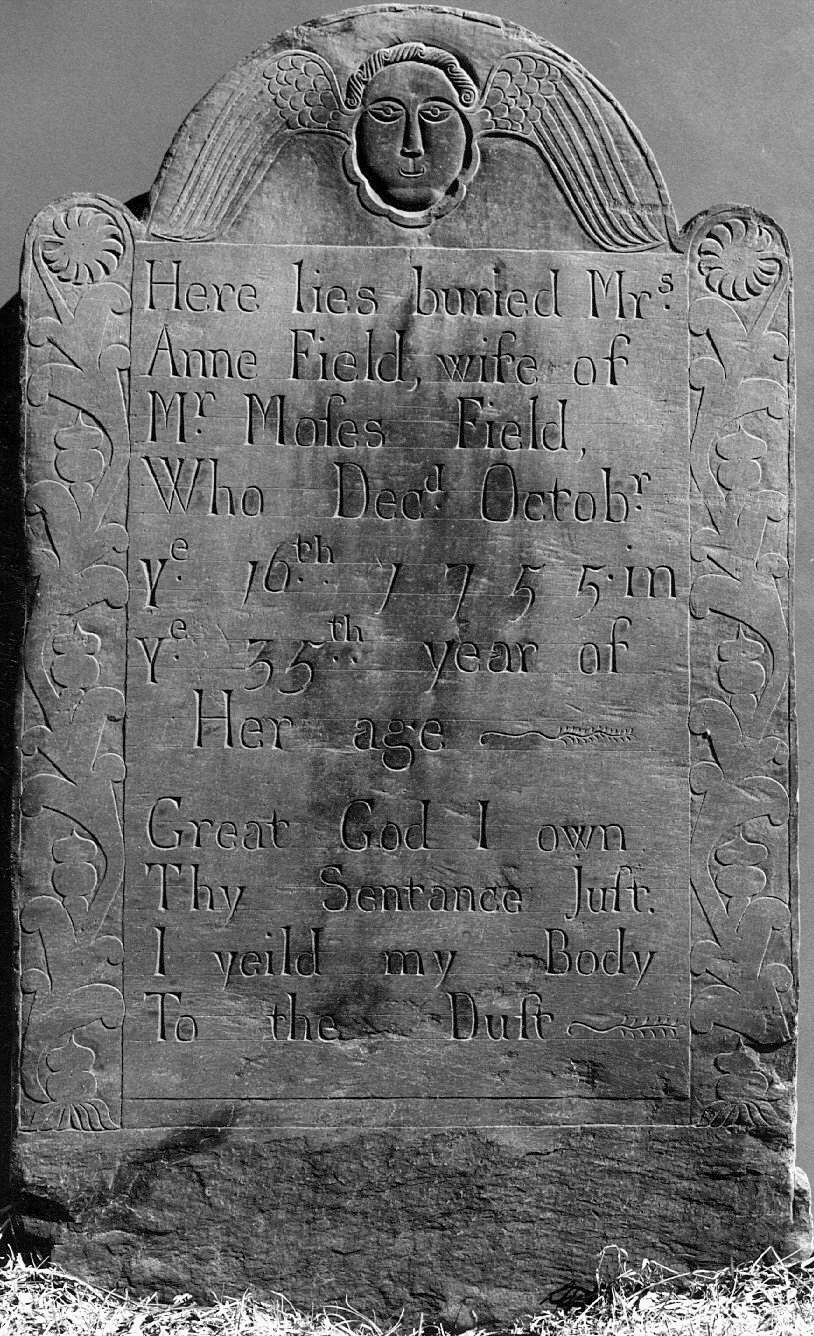 Here lies buried Mrs.
Anne Field, wife of
Mr. Moſes Field,
Who Decd. Octobr.
ye. 16th. 1755. in
ye. 35th. year of
Her age
Great God I own
Thy Sentance Juſt.
I yeild my Body
To the Duſt